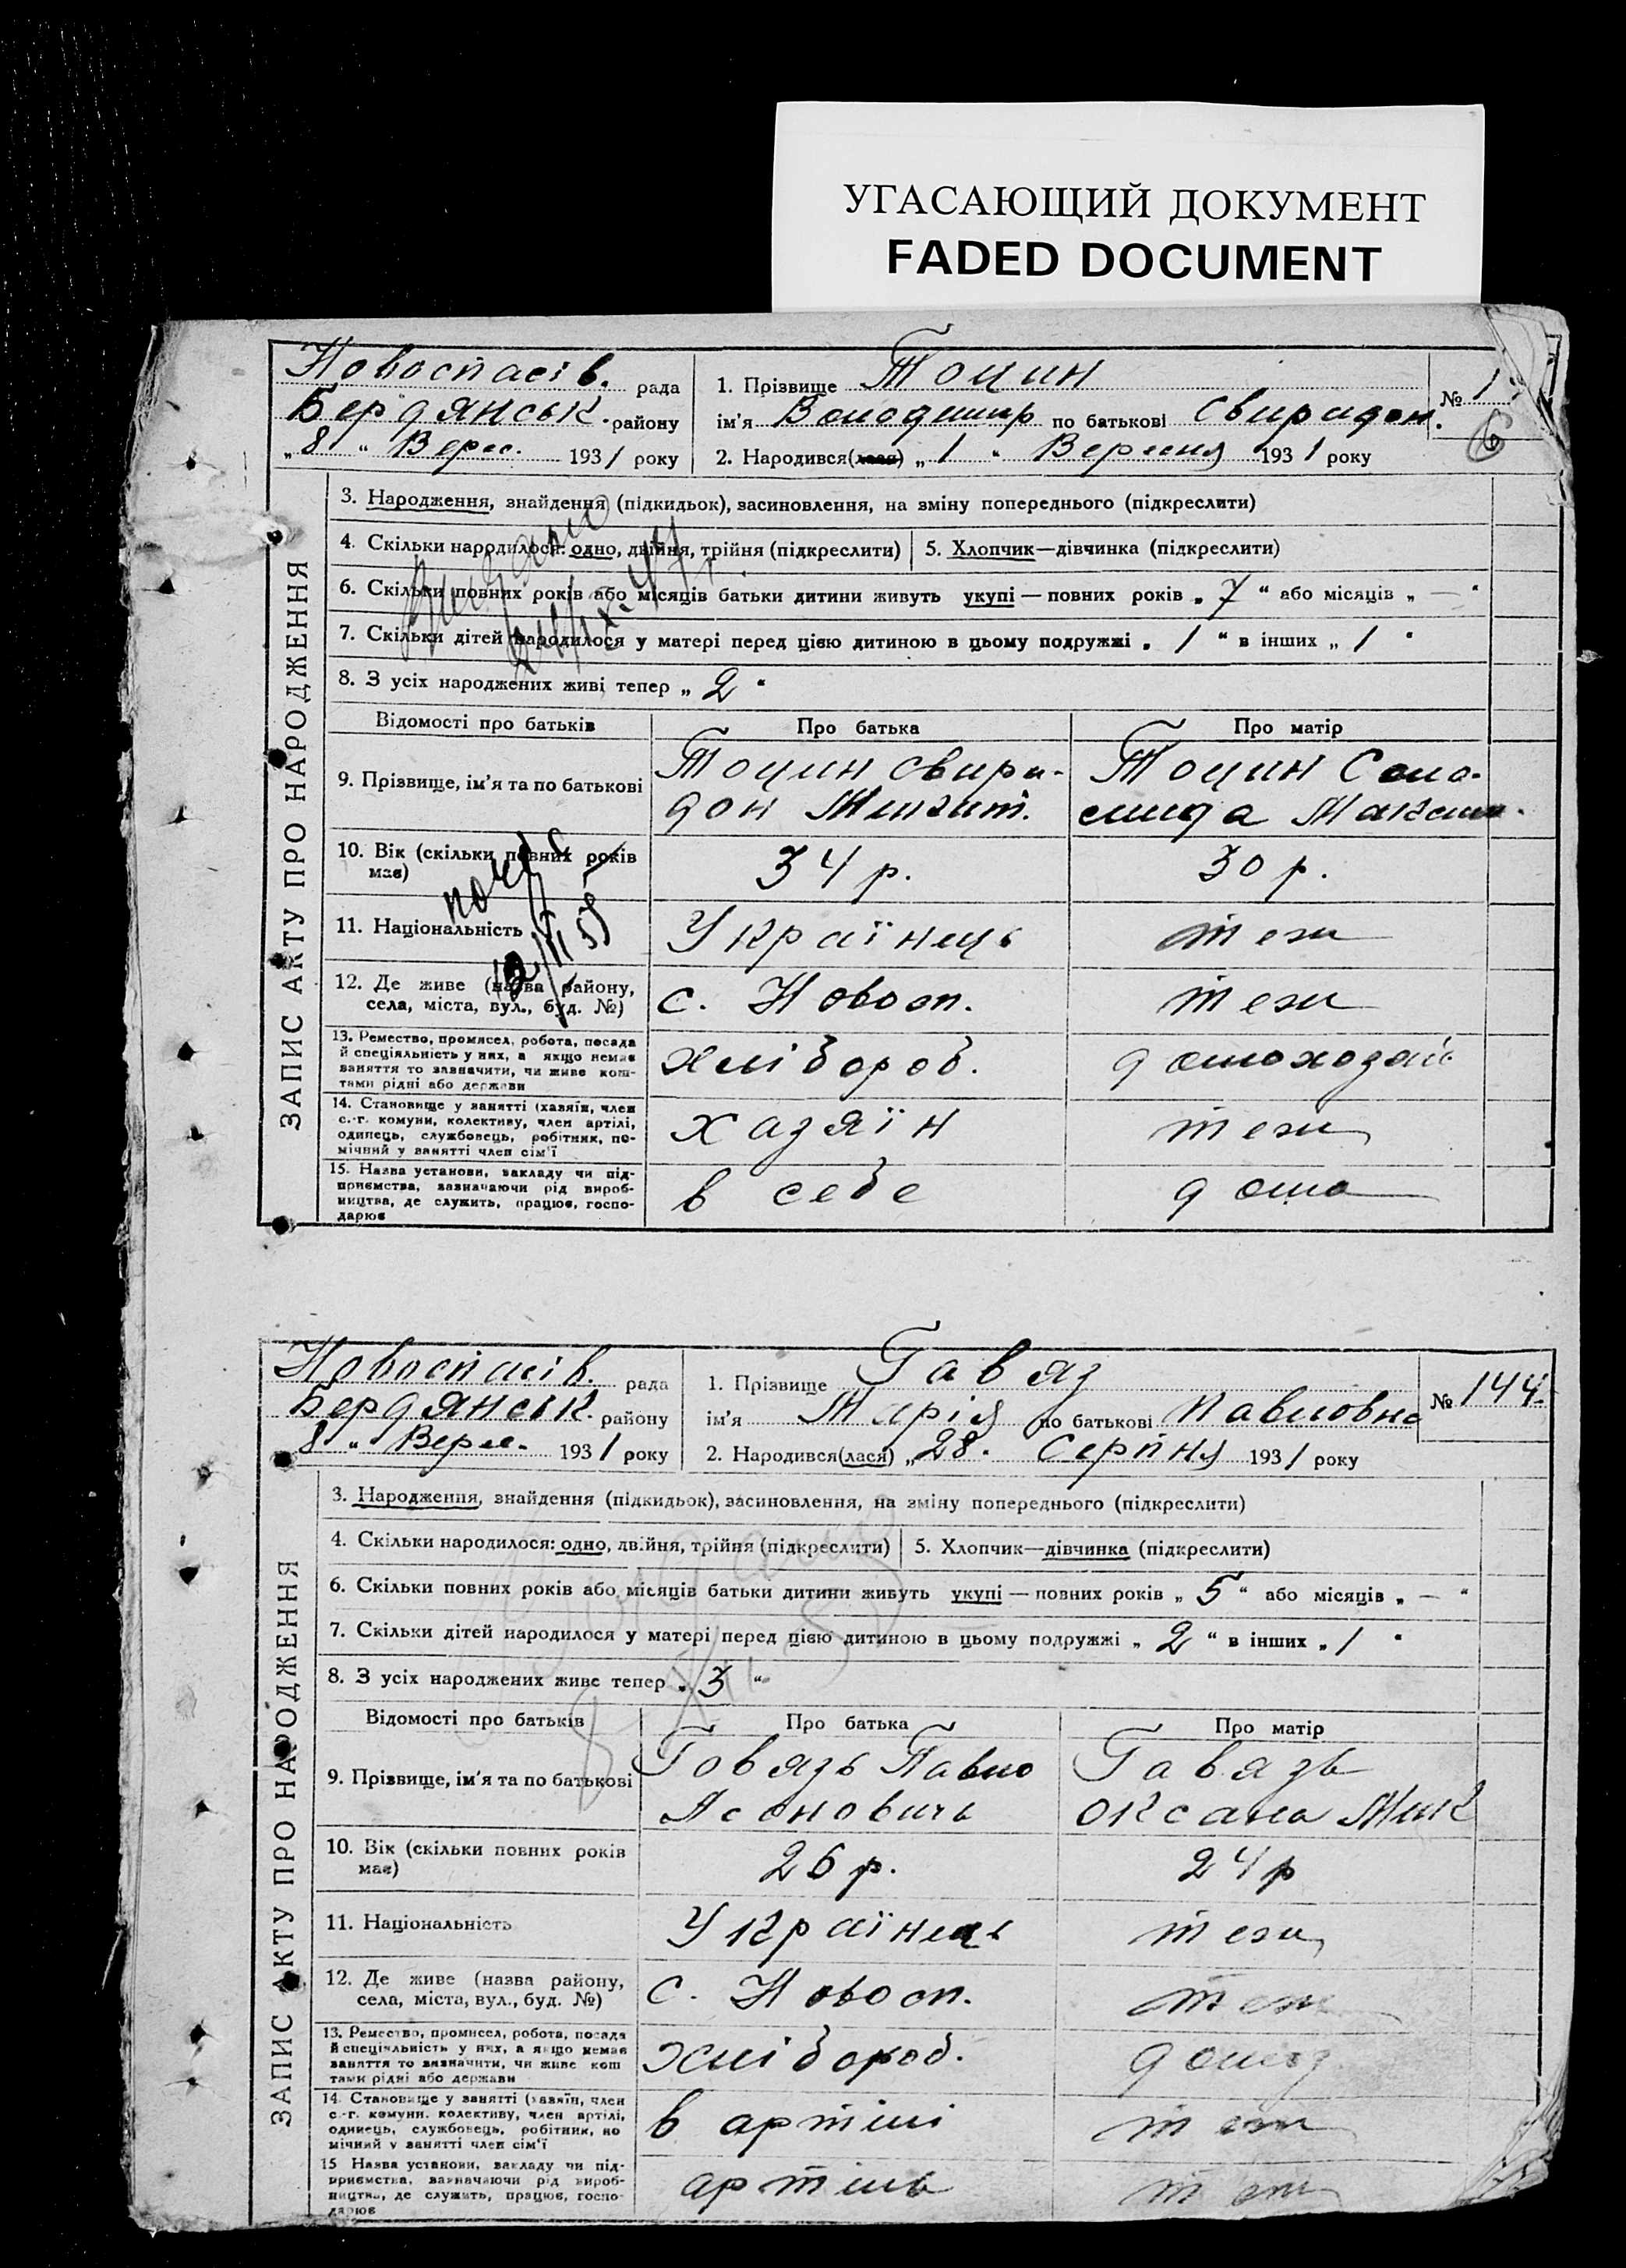 УГАСАЮЩИЙ ДОКУМЕНТ
FADED DOCUMENT
Новоспасів. рада
Бердянськ. району
„ 8 “ Верес. 1931 року
1. Прізвище Тоцин
ім'я Володимир по батькові Свиридон.
2. Народився(лася) „ 1 “ Вересня 1931 року
№ 1
6
ЗАПИС АКТУ ПРО НАРОДЖЕННЯ
3. Народження, знайдення (підкидьок), засиновлення, на зміну попереднього (підкреслити)
4. Скільки народилося: одно, двійня, трійня (підкреслити) 5. Хлопчик—дівчинка (підкреслити)
6. Скільки повних років або місяців батьки дитини живуть укупі — повних років „ 7 “ або місяців „ — “
7. Скільки дітей народилося у матері перед цією дитиною в цьому подружжі „ 1 “ в інших „ 1 “
8. З усіх народжених живі тепер „ 2 “
Відомості про батьків Про батька Про матір
9. Прізвище, ім'я та по батькові
Тоцин Свири-
дон Микит.
Тоцин Соло-
мида Максим.
10. Вік (скільки повних років
має)
34 р. 30 р.
11. Національність Українець теж
12. Де живе (назва району,
села, міста, вул., буд. №)
с. Новосп. теж
13. Ремество, промисел, робота, посада
й спеціяльність у них, а якщо немає
заняття то зазначити, чи живе кош-
тами рідні або держави
хлібороб. домохозяй
14. Становище у занятті (хазяїн, член
с.-г. комуни, колективу, член артілі,
одинець, службовець, робітник, по-
мічний у занятті член сім'ї
хазяїн теж
15. Назва установи, закладу чи під-
приємства, зазначаючи рід вироб-
ництва, де служить, працює, госпо-
дарює
в себе дома
Новоспасів. рада
Бердянськ. району
8 “ Верес. 1931 року
1. Прізвище Гавяз
ім'я Марія по батькові Павловна
2. Народився(лася) „ 28. Серпня 1931 року
№ 144.
ЗАПИС АКТУ ПРО НАРОДЖЕННЯ
3. Народження, знайдення (підкидьок), засиновлення, на зміну попереднього (підкреслити)
4. Скільки народилося: одно, двійня, трійня (підкреслити) 5. Хлопчик—дівчинка (підкреслити)
6. Скільки повних років або місяців батьки дитини живуть укупі — повних років „ 5 “ або місяців „ — “
7. Скільки дітей народилося у матері перед цією дитиною в цьому подружжі „ 2 “ в інших „ 1 “
8. З усіх народжених живе тепер „ 3 “
Відомості про батьків Про батька Про матір
9. Прізвище, ім'я та по батькові
Говязь Павло
Гавязь
Оксана Мик
10. Вік (скільки повних років
має)
26 р. 24 р
11. Національність Українець теж
12. Де живе (назва району,
села, міста, вул., буд. №)
с. Новосп. теж
13. Ремество, промисел, робота, посада
й спеціяльність у них, а якщо немає
заняття то зазначити, чи живе кош
тами рідні або держави
хлібороб.
14. Становище у занятті (хазяїн, член
с.-г. комуни, колективу, член артілі,
одинець, службовець, робітник, по
мічний у занятті член сім'ї
в артілі теж
15 Назва установи, закладу чи під-
приємства, зазначаючи рід вироб-
ництва, де служить, працює, госпо-
дарює
артіль теж